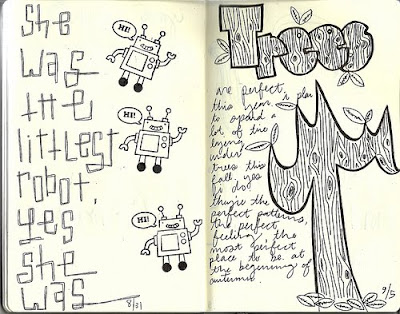 she
was
the
littlest
robot.
yes
she
was
HI!
HI!
HI!
8/31
Trees
are perfect.
this year, i plan
to spend a
lot of time
laying
under
trees this
fall. yes
i do.
they're the
perfect patterns,
the perfect
feeling. the
most perfect
place to be at
the beginning of
autumn.
9/5